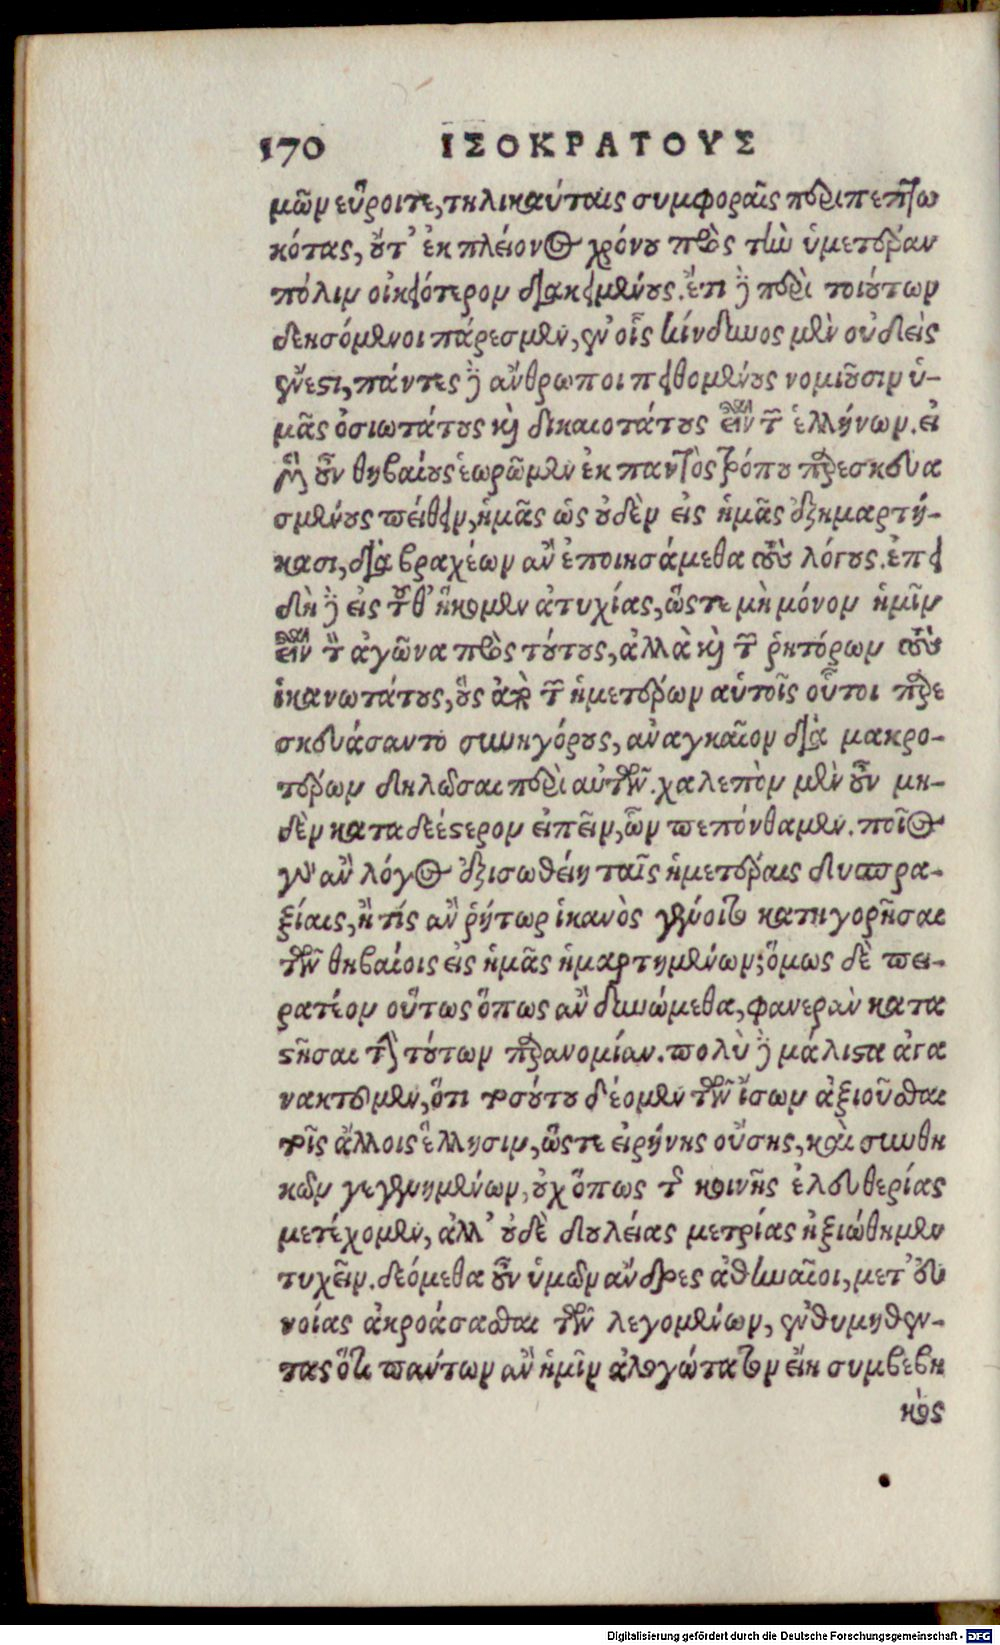 170 ΙΣΟΚΡΑΤΟΥΣ
μῶν εὕροιτε, τηλικαύταις συμφοραῖς περιπεπτω
κότας, οὔτ' ἐκ πλείονος χρόνου πρὸς τὴν ὑμετέραν
πόλιν οἰκειότερον διακειμένους. ἔτι δὲ περὶ τοιούτων
δεησόμενοι πάρεσμεν, ἐν οἷς κίνδυνος μὲν οὐδεὶς
ἔνεστι, πάντες δὲ ἄνθρωποι πειθομένους νομιοῦσιν ὑ-
μᾶς ὁσιωτάτους καὶ δικαιοτάτους εἶναι τῶν ἑλλήνων. εἰ
μὲν οὖν θηβαίους ἑωρῶμεν ἐκ παντὸς τρόπου παρεσκευα
σμένους πείθειν, ἡμᾶς ὡς οὐδὲν εἰς ἡμᾶς ἐξημαρτή-
κασι, διὰ βραχέων ἂν ἐποιησάμεθα τοὺς λόγους. ἐπει
δὴ δὲ εἰς τοῦθ' ἥκομεν ἀτυχίας, ὥστε μὴ μόνον ἡμῖν
εἶναι τὸν ἀγῶνα πρὸς τούτους, ἀλλὰ καὶ τῶν ῥητόρων τοὺς
ἱκανωτάτους, οὓς ἀπὸ τῶν ἡμετέρων αὑτοῖς οὗτοι παρε
σκευάσαντο συνηγόρους, ἀναγκαῖον διὰ μακρο-
τέρων δηλῶσαι περὶ αὐτῶν. χαλεπὸν μὲν οὖν μη-
δὲν καταδεέστερον εἰπεῖν, ὧν πεπόνθαμεν. ποῖος
γὰρ ἂν λόγος ἐξισωθείη ταῖς ἡμετέραις δυσπρα-
ξίαις, ἢ τίς ἂν ῥήτωρ ἱκανὸς γένοιτο κατηγορῆσαι
τῶν θηβαίοις εἰς ἡμᾶς ἡμαρτημένων; ὅμως δὲ πει-
ρατέον οὕτως ὅπως ἂν δυνώμεθα, φανερὰν κατα
στῆσαι τὴν τούτων παρανομίαν. πολὺ δὲ μάλιστα ἀγα
νακτοῦμεν, ὅτι τοσούτου δέομεν τῶν ἴσων ἀξιοῦσθαι
τοῖς ἄλλοις ἕλλησιν, ὥστε εἰρήνης οὔσης, καὶ συνθη
κῶν γεγενημένων, οὐχ ὅπως τῆς κοινῆς ἐλευθερίας
μετέχομεν, ἀλλ' οὐδὲ δουλείας μετρίας ἠξιώθημεν
τυχεῖν. δεόμεθα οὖν ὑμῶν ἄνδρες ἀθηναῖοι, μετ' εὐ
νοίας ἀκροάσασθαι τῶν λεγομένων, ἐνθυμηθέν-
τας ὅτι πάντων ἂν ἡμῖν ἀλογώτατον εἴη συμβεβη
κὸς
Digitalisierung gefördert durch die Deutsche Forschungsgemeinschaft - DFG